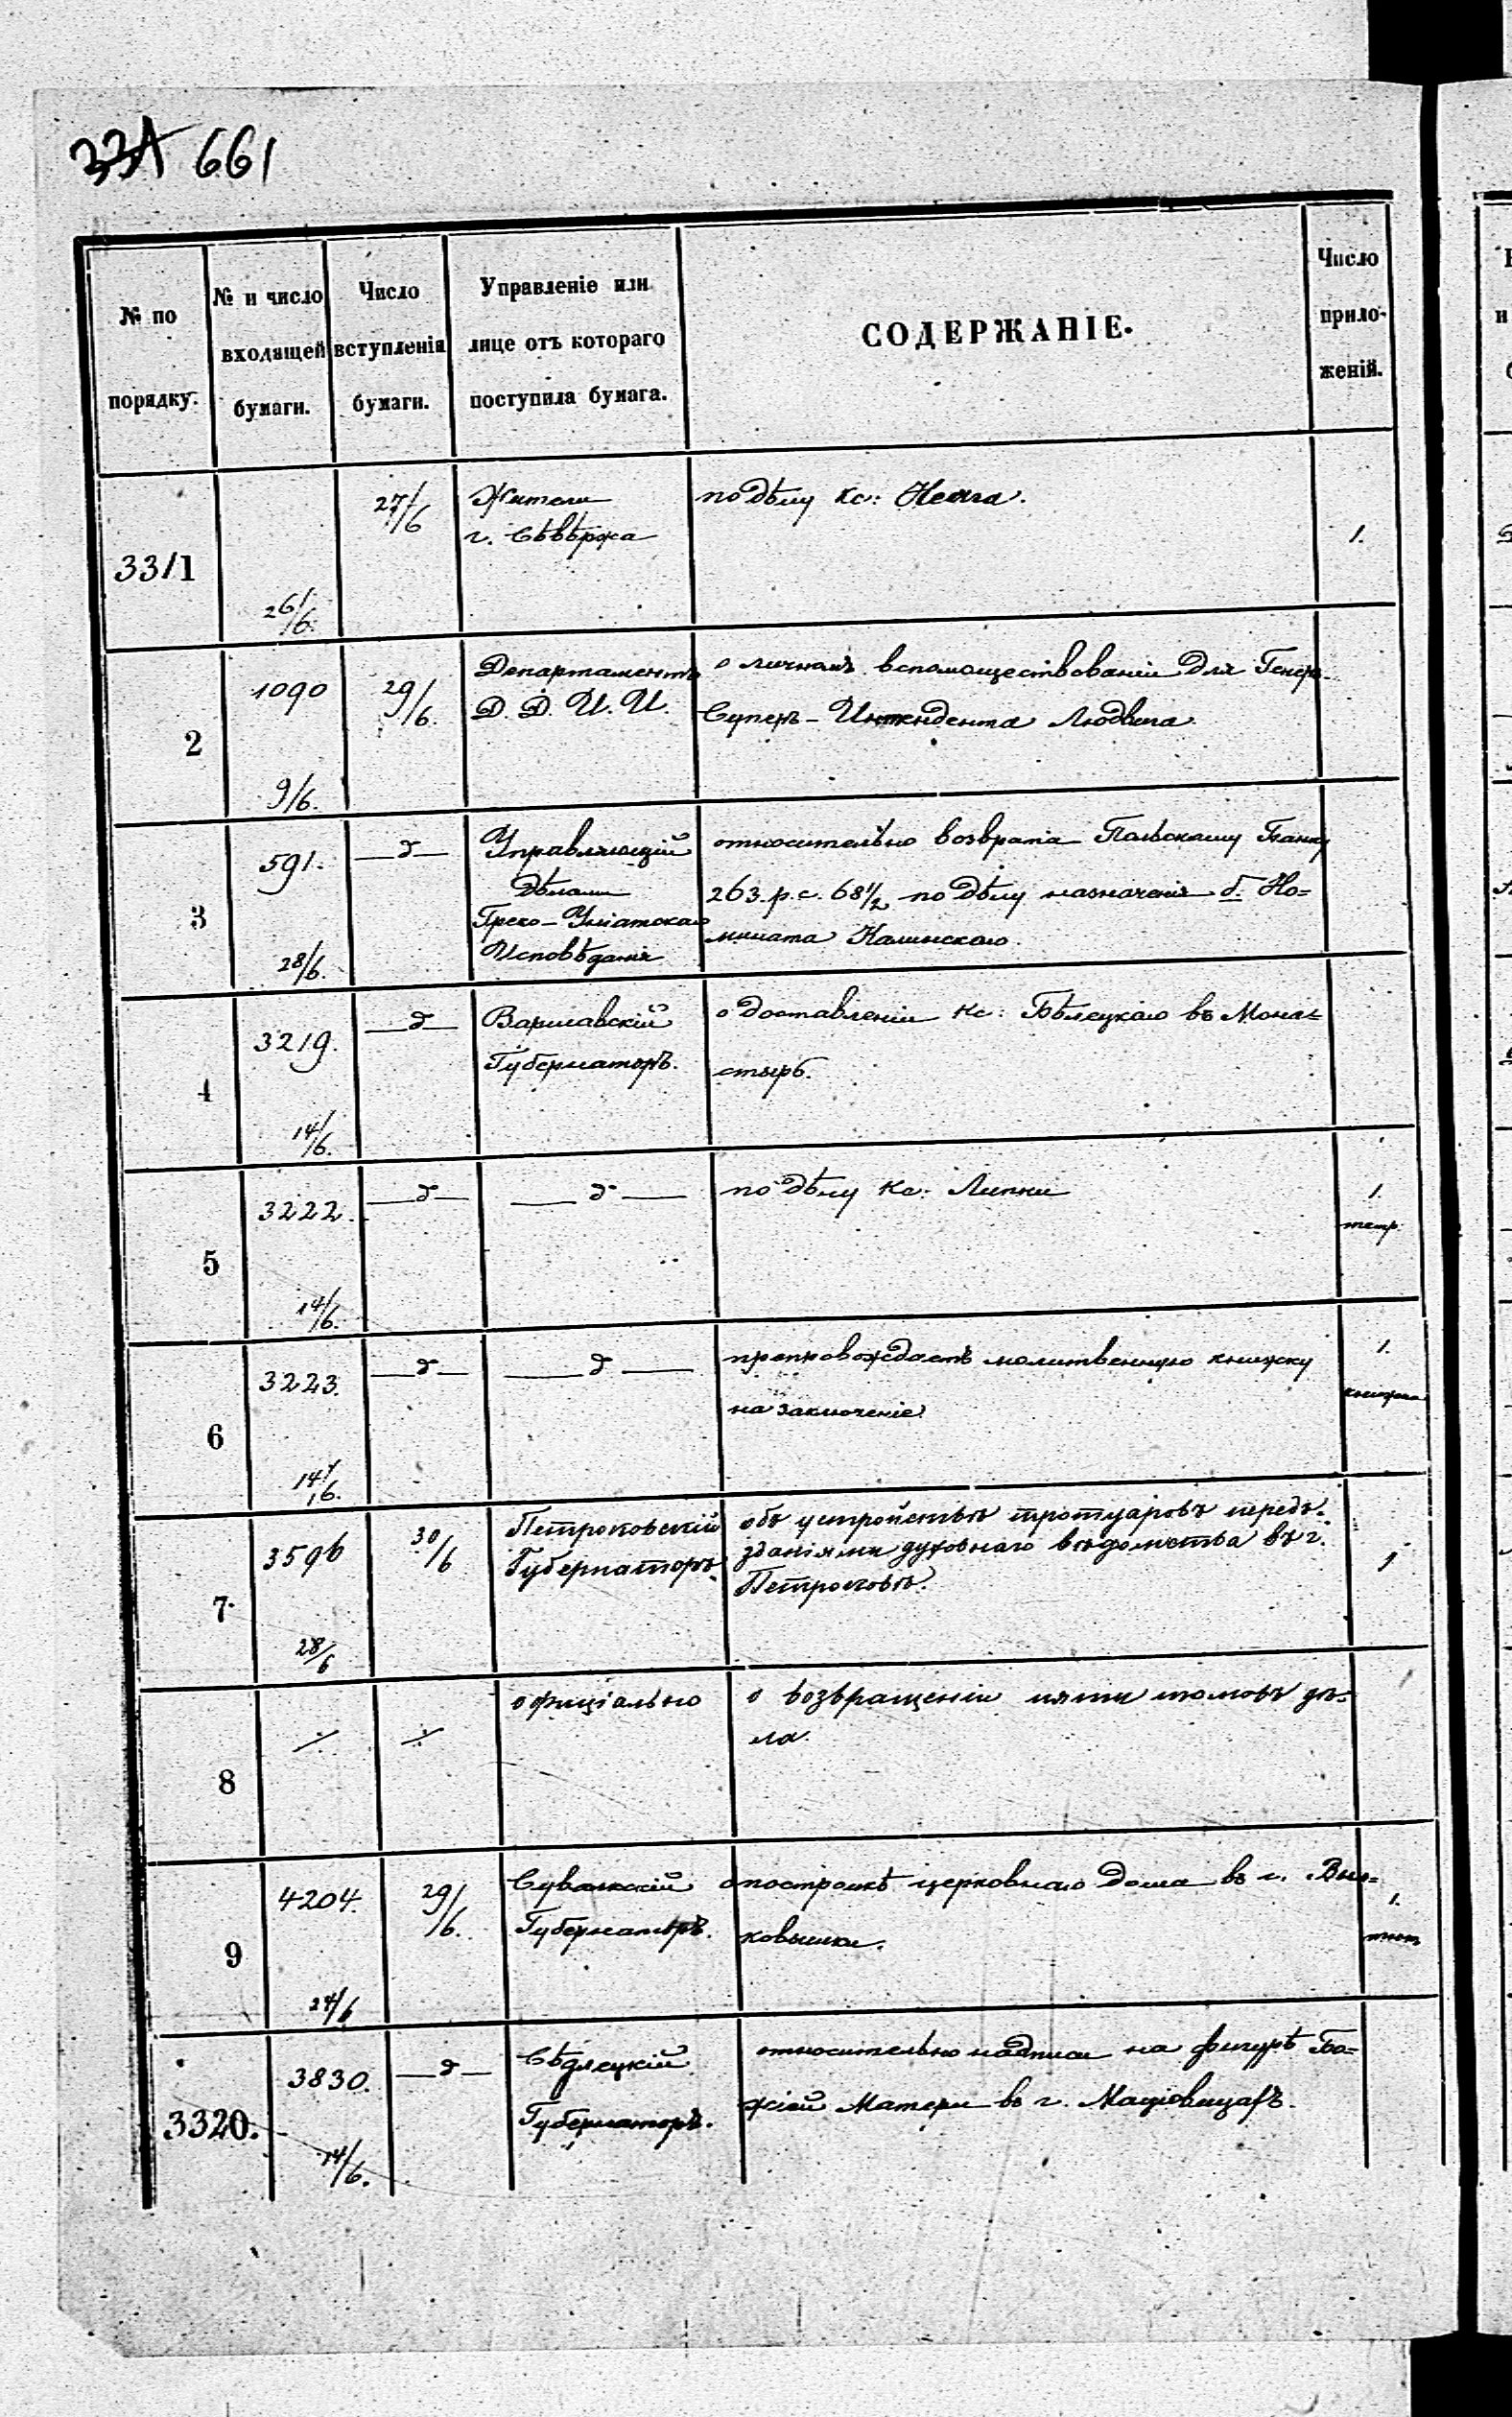 661
№ по
порядку.
№ и число
входящей
бумаги.
Число
вступленія
бумаги.
Управленіе или
лице отъ котораго
поступила бумага.
СОДЕРЖАНІЕ.
Число
прило-
женій.
33/1
26/6.
27/6
Жители
г. Сѣвѣржа
по дѣлу кс:
1.
2
1090
9/6.
29/6.
Департаментъ
Д. Д. И. И.
о личномъ вспомоществованіи для Генер.
Супер-Интендента Людвига
3
591.
28/6.
—д—
Управляющій
дѣлами
Греко-Уніатскаго
Исповѣданія
относительно возврата Польскому Банку
263 р. с. 68 1/2 по дѣлу назначенія б. Но=
мината Калинскаго.
4
3219.
14/6.
—д—
Варшавскій
Губернаторъ.
о доставленіи кс: Бѣлецкаго въ Мона=
стырь.
5
3222.
14/6.
—д—
—д—
по дѣлу кс: Липки
1.
тетр.
6
3223.
14/6.
—д—
—д—
препровождаетъ молитвенную книжку
на заключеніе.
1.
книжка
7
3596
28/6
30/6
Петроковскій
Губернаторъ.
объ устройствѣ тротуаровъ передъ
зданіями духовнаго вѣдомства въ г.
Петроковѣ.
1
8
офиціально
о возвращеніи пяти томовъ дѣ-
ла.
9
4204.
24/6
29/6.
Сувалкскій
Губернаторъ.
о постройкѣ церковнаго дома въ г. Вил=
ковишки.
1.
3320.
3830.
14/6.
—д—
Сѣдлецкій
Губернаторъ.
относительно надписи на фигурѣ Бо=
жіей Матери въ г. Маціовицахъ.